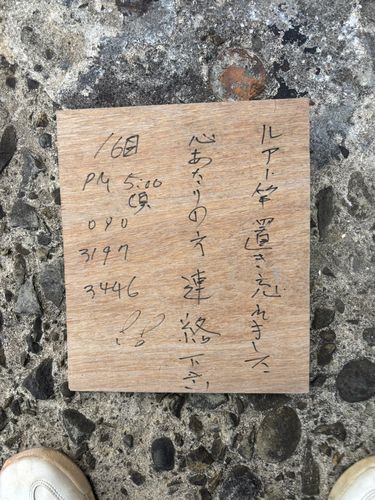 ルアー竿置き忘れました
心あたりの方連絡下さい
16日
PM 5:00
頃
090
3197
3446